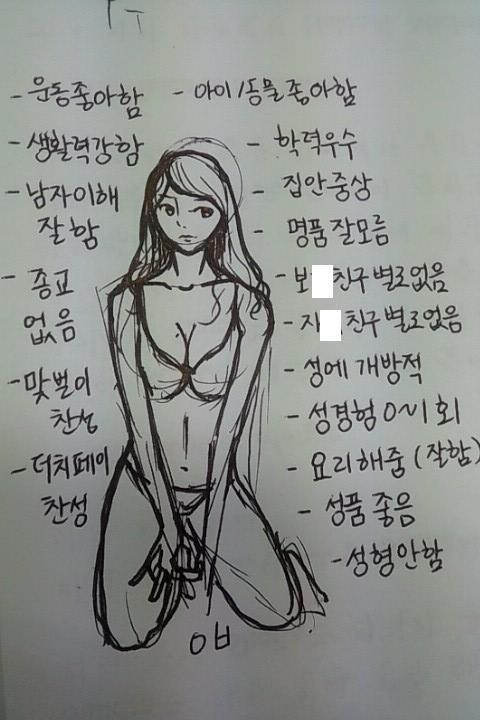 - 운동좋아함
- 생활력강함
- 남자이해
잘함
- 종교
없음
- 맞벌이
찬성
- 더치페이
찬성
- 아이/동물좋아함
- 학력우수
- 집안중상
- 명품잘모름
- 보 친구별로없음
- 자 친구별로없음
- 성에개방적
- 성경험0~1회
- 요리해줌(잘함)
- 성품좋음
- 성형안함